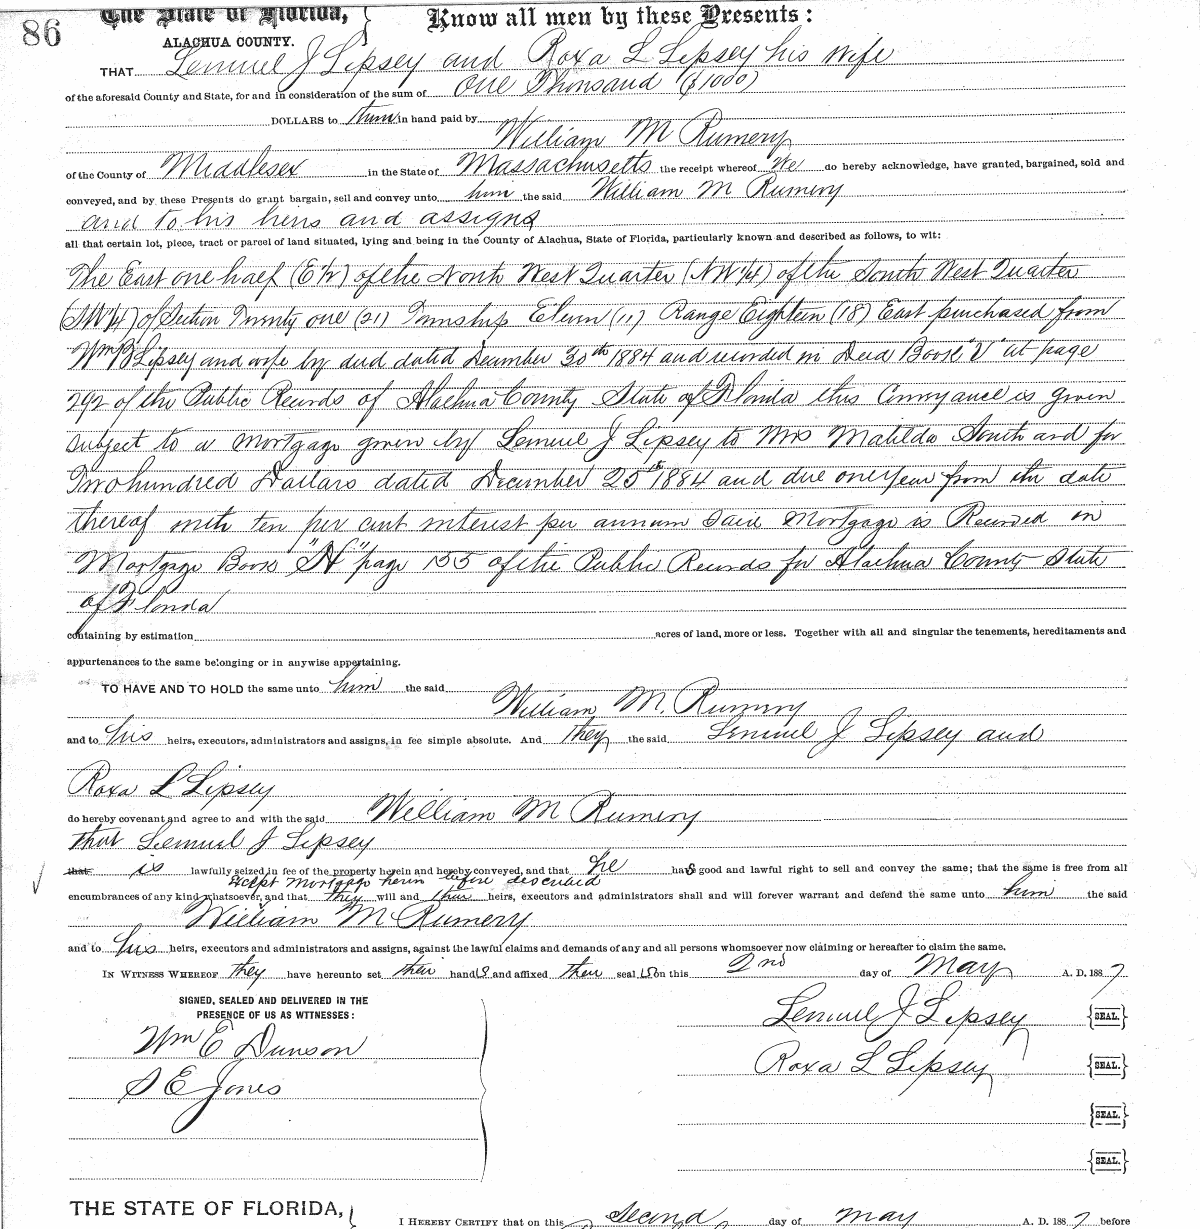 86
The State of Florida,
Know all men by these Presents:
ALACHUA COUNTY.
THAT Lemuel J Lipsey and Roxa L Lipsey his wife
of the aforesaid County and State, for and in consideration of the sum of one Thousand ($1000)
DOLLARS to them in hand paid by
William M Rumery
of the County of Middlesex in the State of Massachusetts the receipt whereof we do hereby acknowledge, have granted, bargained, sold and
conveyed, and by these Presents do grant bargain, sell and convey unto him the said William M Rumery
and to his heirs and assigns
all that certain lot, piece, tract or parcel of land situated, lying and being in the County of Alachua, State of Florida, particularly known and described as follows, to wit:
The East one half (E 1/2) of the North West Quarter (NW 1/4) of the South West Quarter
(SW 1/4) of Section Twenty one (21) Township Eleven (11) Range Eighteen (18) East purchased from
Wm B Lipsey and wife by deed dated December 30th 1884 and recorded in Deed Book "V" at page
292 of the Public Records of Alachua County State of Florida this Conveyance is given
subject to a Mortgage given by Lemuel J Lipsey to Mrs Matilda South and for
Two hundred Dollars dated December 25th 1884 and due one year from the date
thereof with ten per cent interest per annum said Mortgage is Recorded in
Mortgage Book "H" page 155 of the Public Records for Alachua County State
of Florida
containing by estimation acres of land, more or less. Together with all and singular the tenements, hereditaments and
appurtenances to the same belonging or in anywise appertaining.
TO HAVE AND TO HOLD the same unto him the said
William M. Rumery
and to his heirs, executors, administrators and assigns, in fee simple absolute. And they the said Lemuel J Lipsey and
Roxa L Lipsey
do hereby covenant and agree to and with the said William M Rumery
that Lemuel J Lipsey
that is lawfully seized in fee of the property herein and hereby conveyed, and that he has good and lawful right to sell and convey the same; that the same is free from all
except mortgage herein before described
encumbrances of any kind whatsoever, and that they will and their heirs, executors and administrators shall and will forever warrant and defend the same unto him the said
William M Rumery
and to his heirs, executors and administrators and assigns, against the lawful claims and demands of any and all persons whomsoever now claiming or hereafter to claim the same.
IN WITNESS WHEREOF they have hereunto set their hands and affixed their seals on this 2nd day of May A. D. 1887
SIGNED, SEALED AND DELIVERED IN THE
PRESENCE OF US AS WITNESSES:
Wm E Dunson
S E Jones
Lemuel J Lipsey SEAL.
Roxa L Lipsey SEAL.
SEAL.
SEAL.
THE STATE OF FLORIDA,
I HEREBY CERTIFY that on this Second day of May A. D. 1887 before